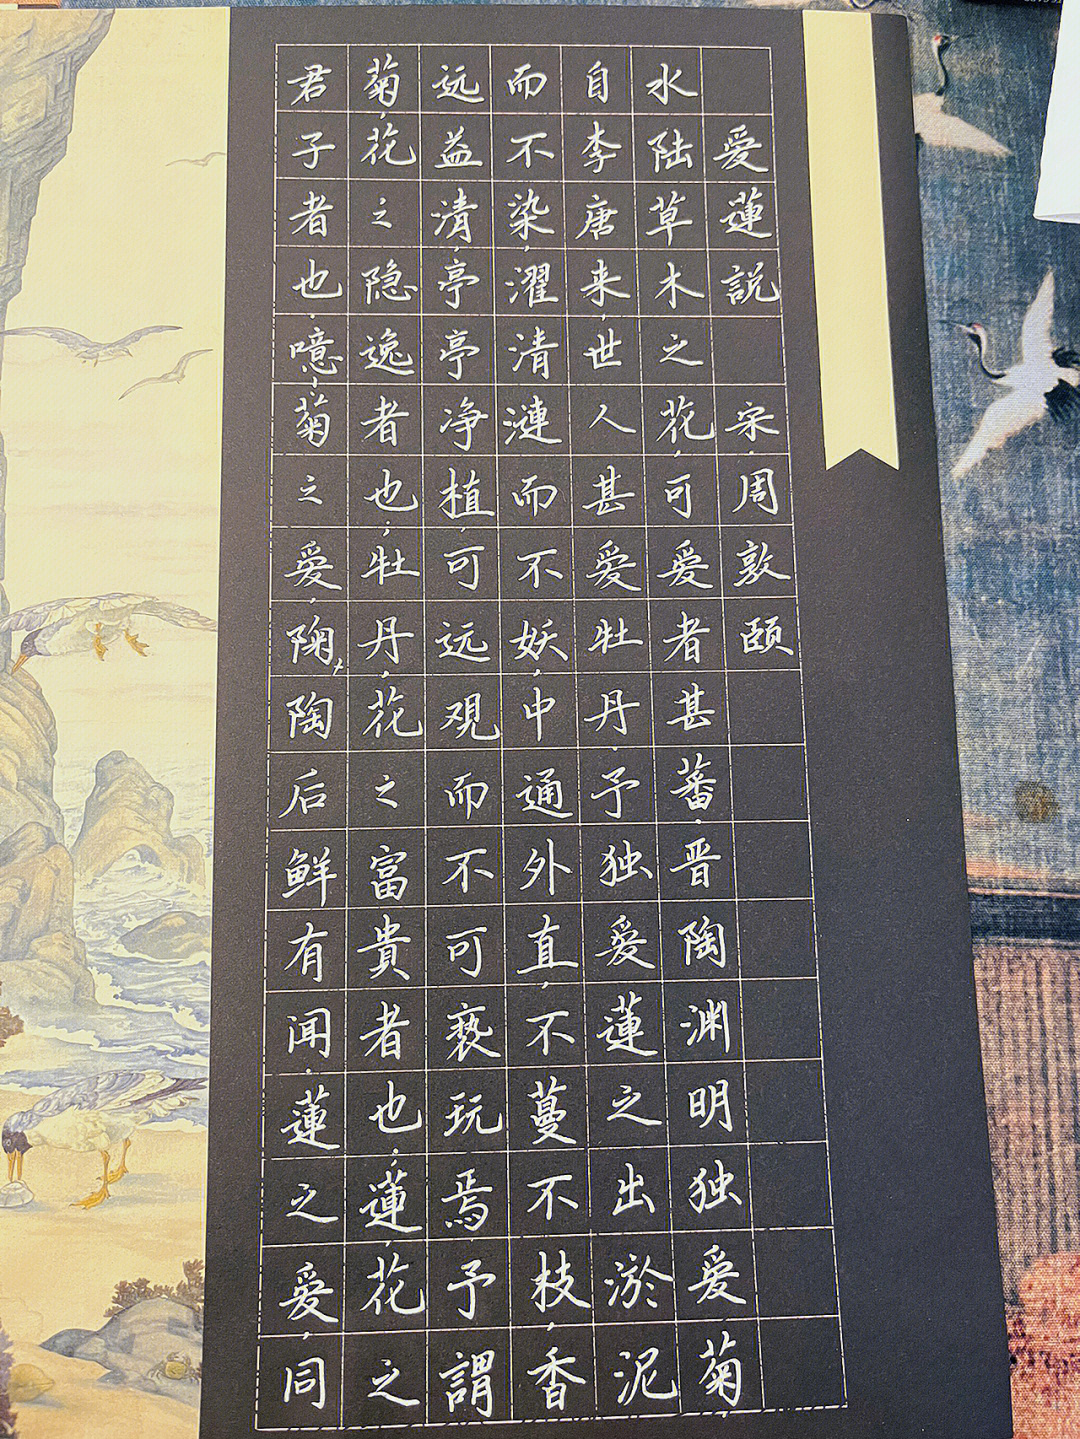 愛蓮説 宋·周敦颐
水陆草木之花,可爱者甚蕃.晋陶渊明独爱菊.
自李唐来,世人甚爱牡丹.予独爱蓮之出淤泥
而不染,濯清漣而不妖,中通外直,不蔓不枝,香
远益清,亭亭净植,可远观而不可亵玩焉.予謂
菊,花之隐逸者也;牡丹,花之富貴者也;蓮,花之
君子者也.噫!菊之爱,陶陶后鲜有闻.蓮之爱,同